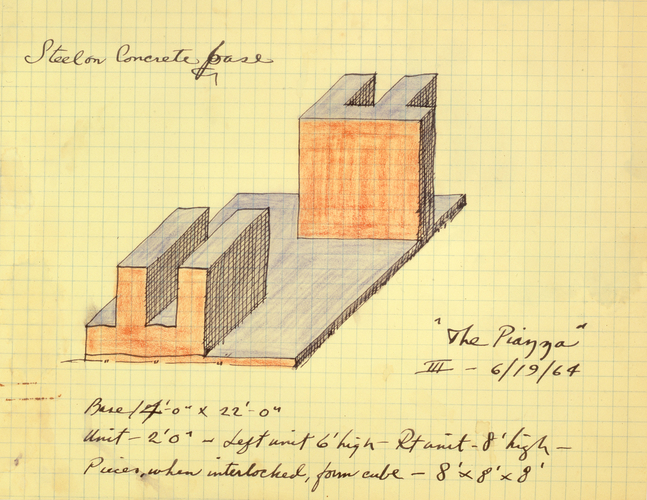 Steel on Concrete base
"The Piazza"
III - 6/19/64
Base 14'-0" x 22'-0"
Unit - 2'0" - Left unit 6' high - Rt unit - 8' high -
Pieces, when interlocked, form cube - 8' x 8' x 8'